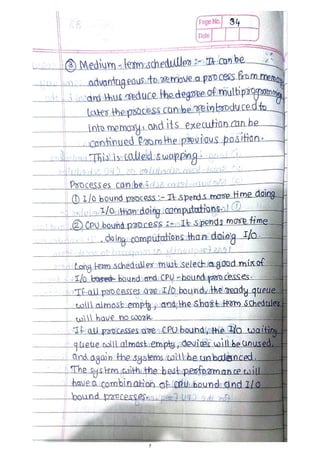 Page No. 34
Date
③ Medium-term scheduller :- It can be
advantageous to remove a process from memory
and thus reduce the degree of multiprogramming
Later the process can be reintroduced to
into memory, and its execution can be
continued from the previous position.
This is called swapping.
Processes can be :
① I/O bound process :- It spends more time doing
I/O than doing computations.
② CPU bound process :- It spends more time
doing computations than doing I/O.
Long term scheduller must select a good mix of
I/O based bound and CPU-bound processes.
If all processes are I/O bound, the ready queue
will almost empty, and the short term scheduler
will have no work
If all processes are CPU bound, the I/O waiting
queue will almost empty, devices will be unused,
and again the systems will be unbalanced.
The system with the best performance will
have a combination of CPU bound and I/O
bound processes.